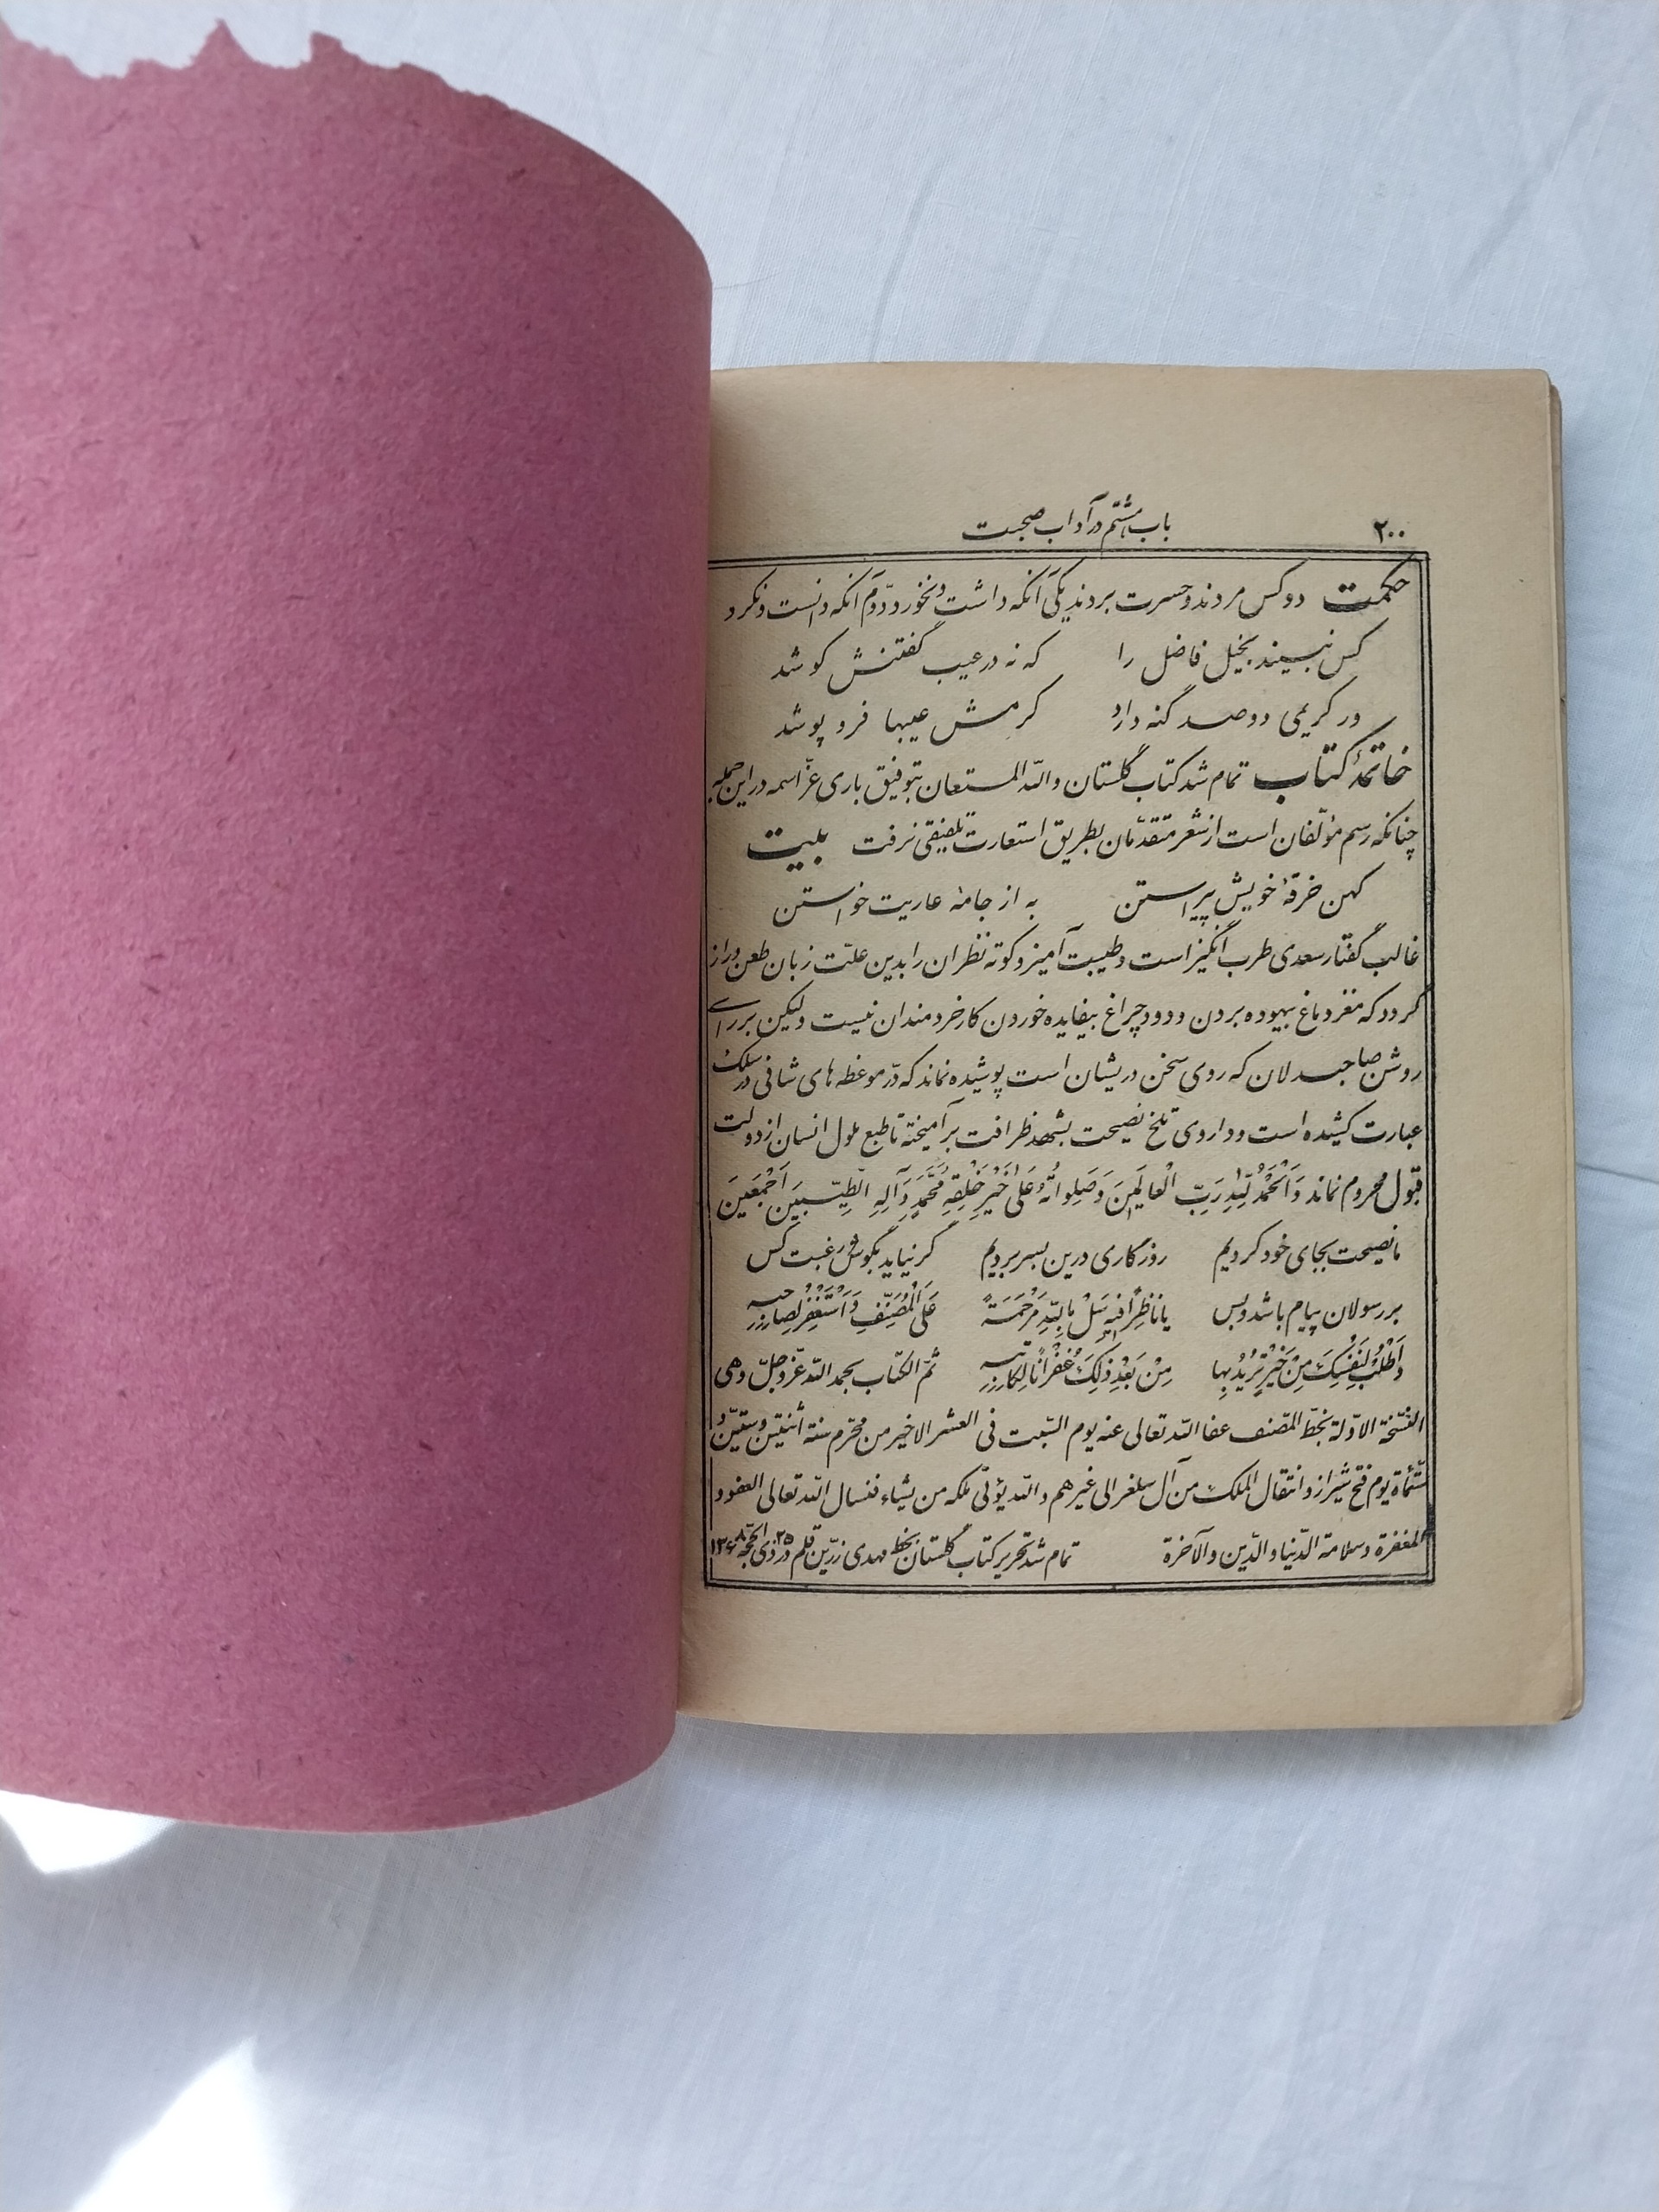 ۲۰۰
باب هشتم در آداب صحبت
حکمت دو کس مردند و حسرت بردند یکی آنکه داشت و نخورد و دوم آنکه دانست و نکرد
کس نبیند بخیل فاضل را که نه در عیب گفتنش کوشد
ور کریمی دو صد گنه دارد کرمش عیبها فرو پوشد
خاتمهٔ کتاب تمام شد کتاب گلستان والله المستعان بتوفیق باری عزّ اسمه در این جمله
چنانکه رسم مؤلّفان است از شعر متقدّمان بطریق استعارت تلفیقی نرفت بیت
کهن خرقهٔ خویش پیراستن به از جامهٔ عاریت خواستن
غالب گفتار سعدی طرب انگیز است و طیبت آمیز و کوته نظران را بدین علّت زبان طعن دراز
گردد که مغز دماغ بیهوده بردن و دود چراغ بیفایده خوردن کار خردمندان نیست ولیکن بر رای
روشن صاحبدلان که روی سخن در یشان است پوشیده نماند که دُرّ موعظه های شافی در سلک
عبارت کشیده است و داروی تلخ نصیحت بشهد ظرافت بر آمیخته تا طبع ملول انسان از دولت
قبول محروم نماند وَالْحَمْدُ لِلّٰهِ رَبِّ الْعالَمِینَ وَ صَلَواتُهُ عَلیٰ خَیْرِ خَلْقِهِ مُحَمَّدٍ وَ آلِهِ الطَّیِّبینَ اَجْمَعینَ
ما نصیحت بجای خود کردیم روزگاری درین بسر بردیم گر نیاید بگوش رغبت کس
بر رسولان پیام باشد و بس یا ناظِراً فیهِ سَلْ بِاللّٰهِ مَرْحَمَةً عَلَی الْمُصَنِّفِ وَ اسْتَغْفِرْ لِصاحِبِهِ
وَ اطْلُبْ لِنَفْسِکَ مِنْ خَیْرٍ تُریدُ بِها مِنْ بَعْدِ ذٰلِکَ غُفْراناً لِکاتِبِهِ تمّ الکتاب بحمد الله عزّ و جلّ و هی
النّسخة الاوّلة بخطّ المصنف عفا الله تعالی عنه یوم السّبت فی العشر الاخیر من محرّم سنة اثنتین و ستّین و
ستّمأة یوم فتح شیراز و انتقال الملک من آل سلغر الی غیرهم والله یؤتی ملکه من یشاء فنسال الله تعالی العفو و
المغفرة و سلامة الدّنیا و الدّین و الآخرة تمام شد تحریر کتاب گلستان بخط مهدی زرّین قلم در ۲۵ ذی الحجّه